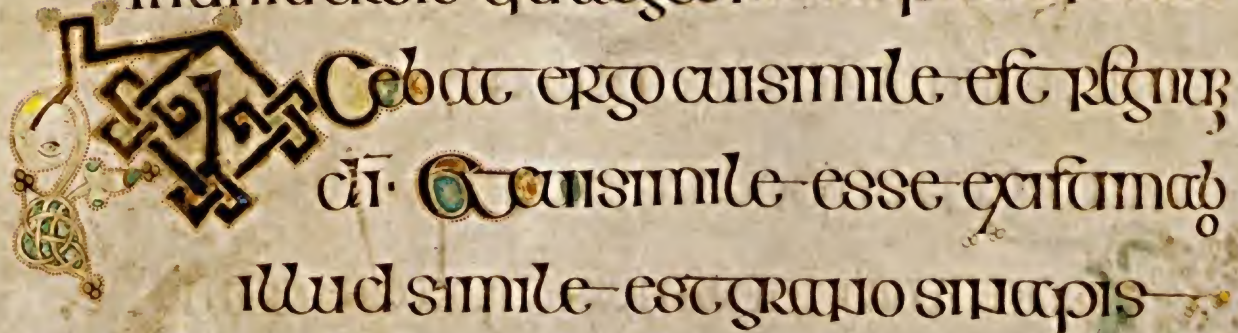 DICebat ergo cui simile est regnuꝫ
dī· Et cui simile esse existimabo
illud simile est grano sinapis